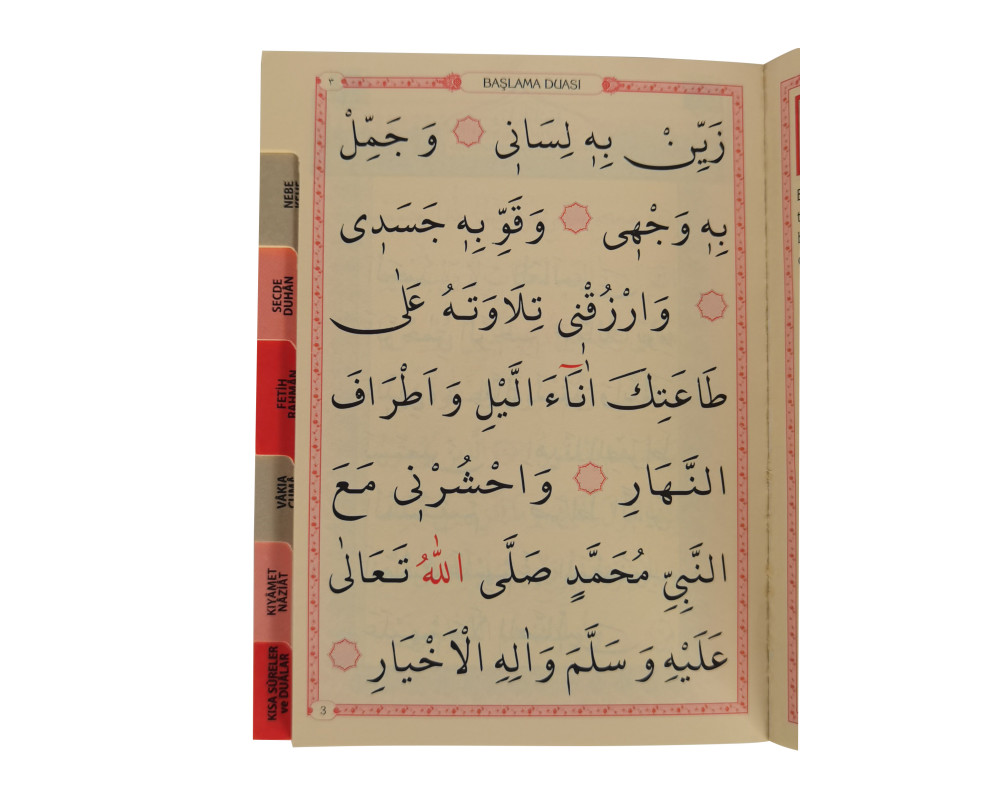 ٣
BAŞLAMA DUASI
زَيِّنْ بِهٖ لِسَانٖي ۞ وَ جَمِّلْ
بِهٖ وَجْهٖي ۞ وَقَوِّ بِهٖ جَسَدٖي
۞ وَارْزُقْنٖي تِلَاوَتَهُ عَلٰى
طَاعَتِكَ اٰنَٓاءَ الَّيْلِ وَ اَطْرَافَ
النَّهَارِ ۞ وَاحْشُرْنٖي مَعَ
النَّبِيِّ مُحَمَّدٍ صَلَّى اللّٰهُ تَعَالٰى
عَلَيْهِ وَ سَلَّمَ وَاٰلِهِ الْاَخْيَارِ ۞
3
NEBE
SECDE
DUHÂN
FETİH
RAHMÂN
VÂKIA
CUMA
KIYÂMET
NÂZİÂT
KISA SÛRELER
ve DUÂLAR